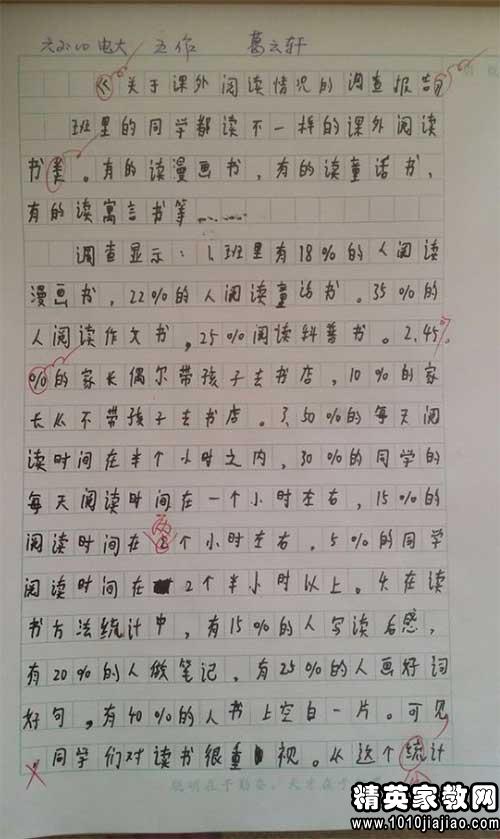 电大 五作 葛云轩
《关于课外阅读情况的调查报告》
班里的同学都读不一样的课外阅读
书类。有的读漫画书，有的读童话书，
有的读寓言书等……
调查显示：1、班里有18%的人阅读
漫画书，22%的人阅读童话书。35%的
人阅读作文书，25%阅读科普书。2、45%
%的家长偶尔带孩子去书店，10%的家
长从不带孩子去书店。3、50%的每天阅
读时间在半个小时之内，30%的同学的
每天阅读时间在一个小时左右，15%的
阅读时间在两个小时左右。5%的同学
阅读时间在2个半小时以上。4、在读
书方法统计中，有15%的人写读后感，
有20%的人做笔记，有25%的人画好词
好句，有40%的人书上空白一片。可见
同学们对读书很重视。从这个统计
聪明在于勤奋，天才在于
精英家教网
www.1010jiajiao.com